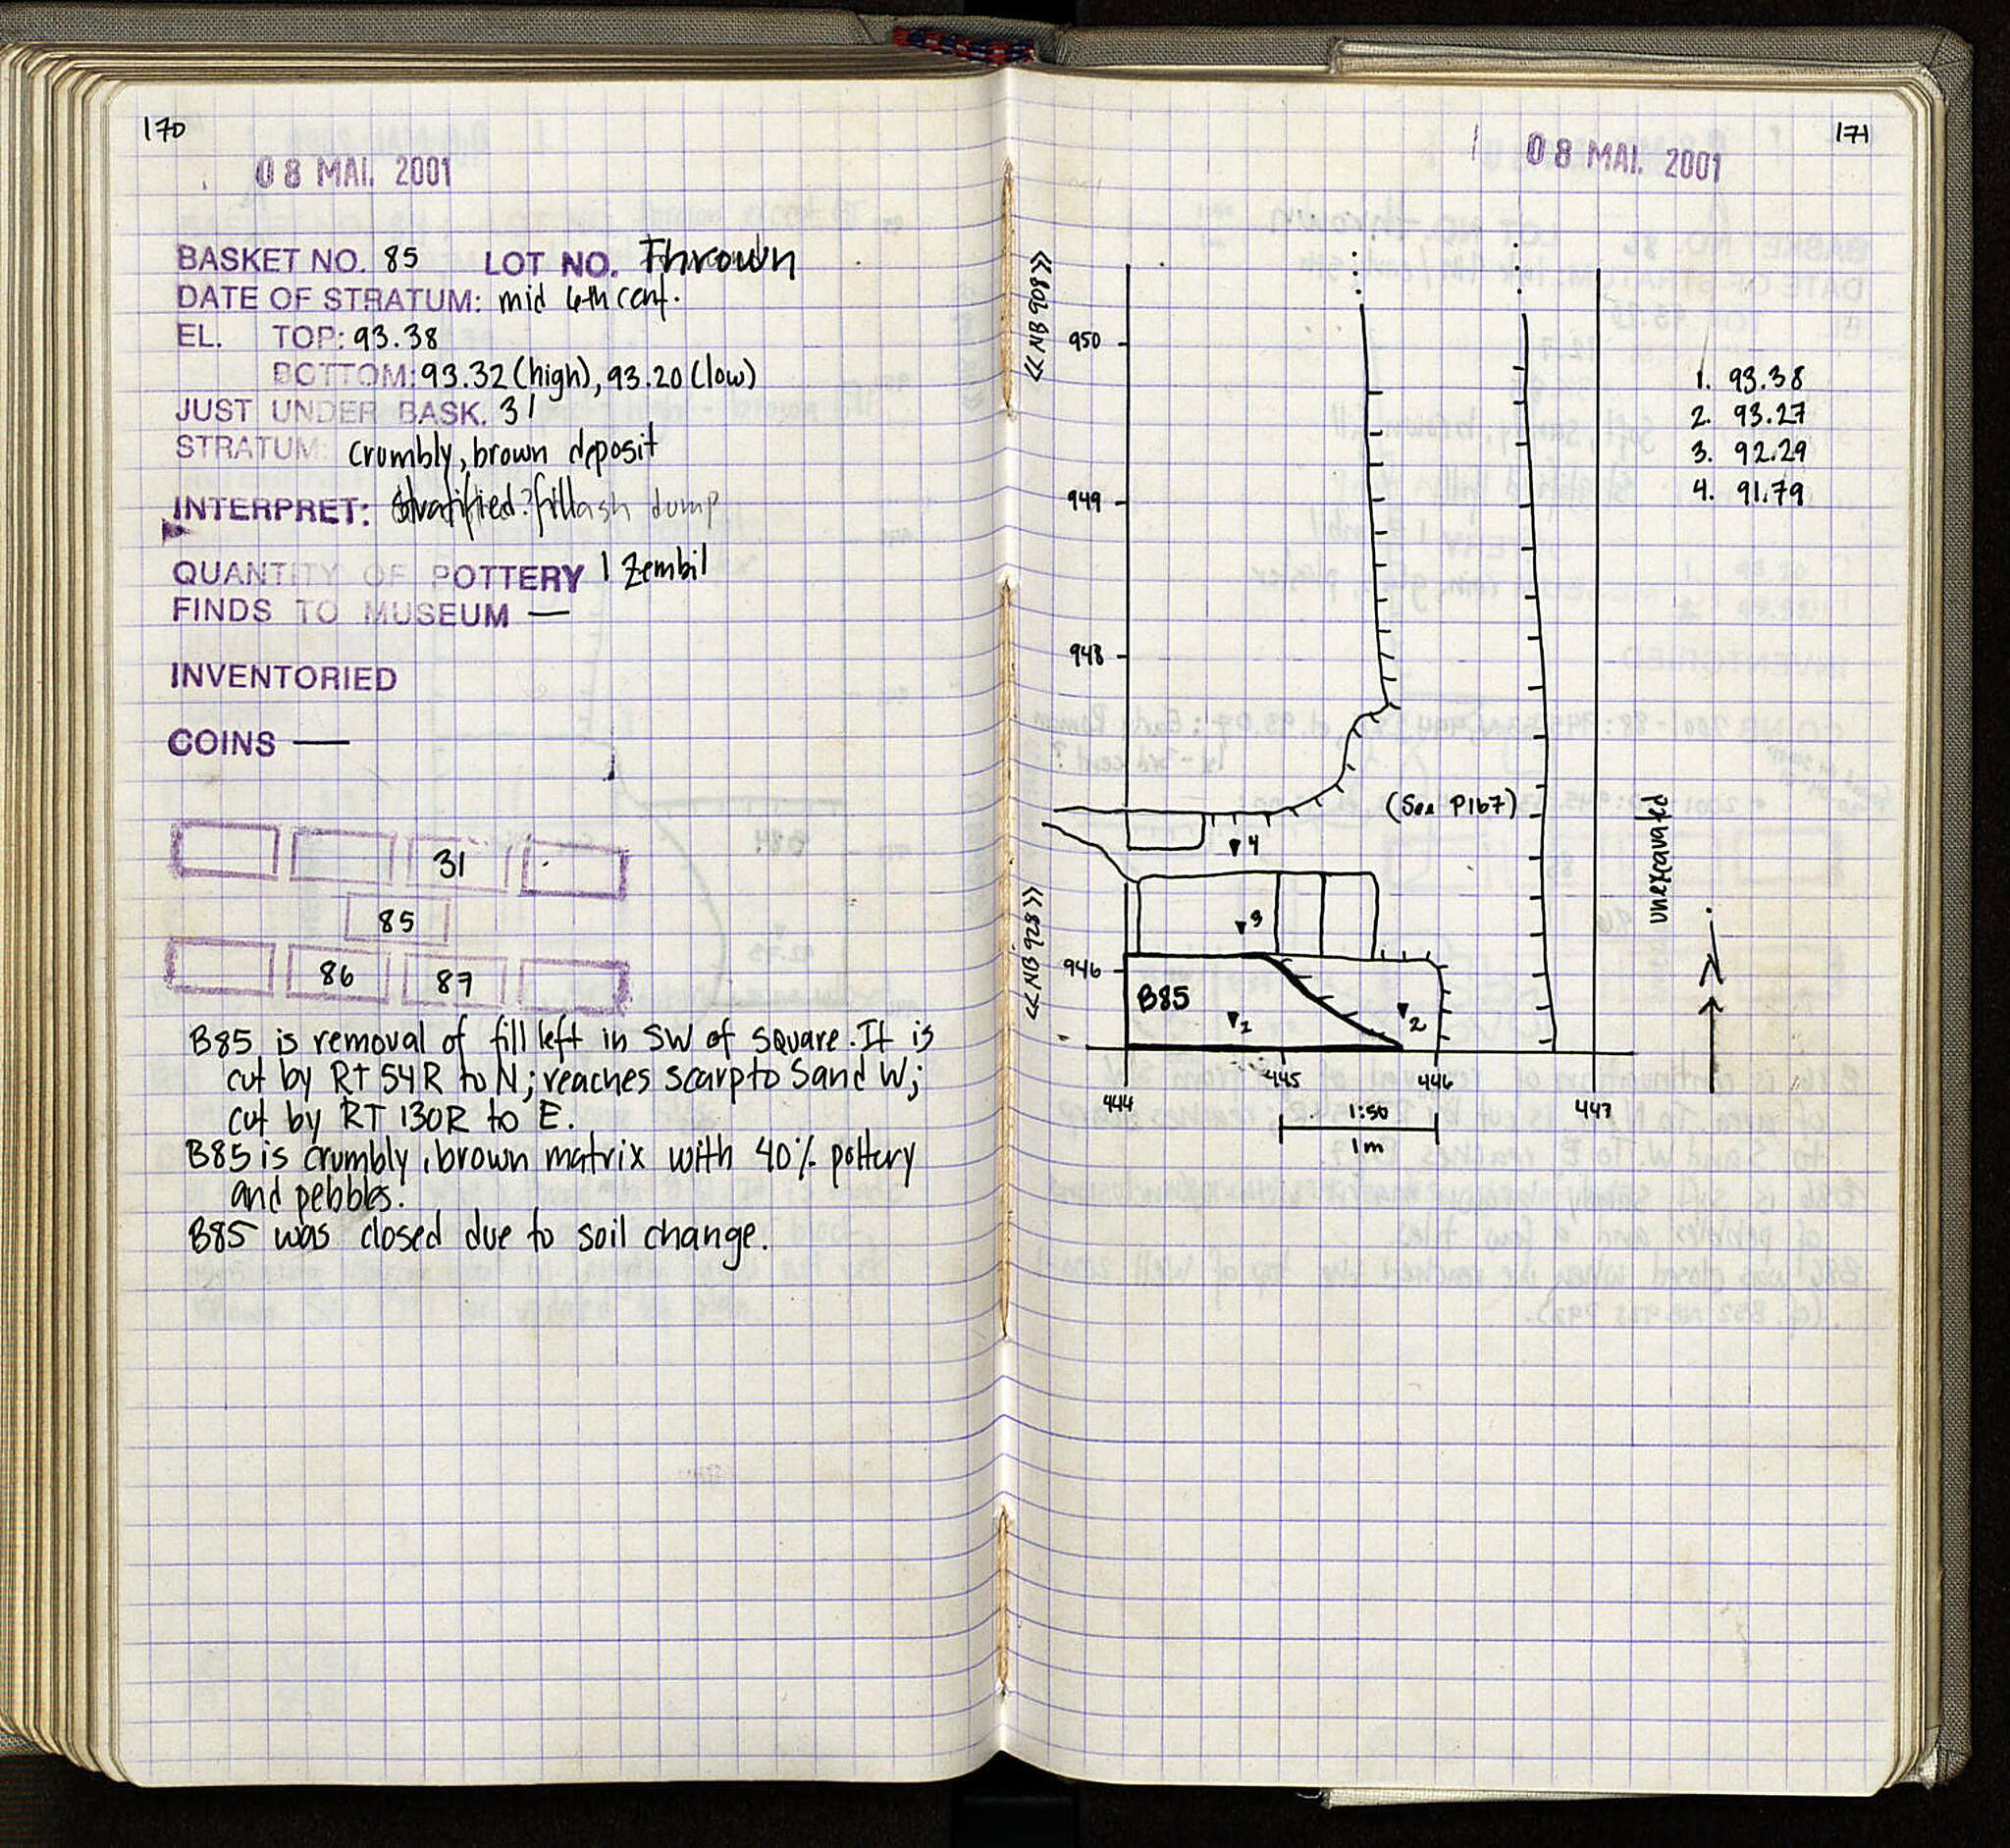 170
08 MAI. 2001
BASKET NO. 85 LOT NO. Thrown
DATE OF STRATUM: mid 6th cent.
EL. TOP: 93.38
BOTTOM: 93.32 (high), 93.20 (low)
JUST UNDER BASK. 31
STRATUM: crumbly, brown deposit
INTERPRET: Stratified? fill ash dump
QUANTITY OF POTTERY 1 Zembil
FINDS TO MUSEUM —
INVENTORIED
COINS —
31
85
86 87
B85 is removal of fill left in SW of square. It is
cut by RT 54R to N; reaches scarp to S and W;
cut by RT 130R to E.
B85 is crumbly, brown matrix with 40% pottery
and pebbles.
B85 was closed due to soil change.
171
08 MAI. 2001
<<NB 908>>
950
949
948
946
<<NB 928>>
1. 93.38
2. 93.27
3. 92.29
4. 91.79
(See P167)
unexcavated
4
3
B85
1
2
444
445
446
447
1:50
1m